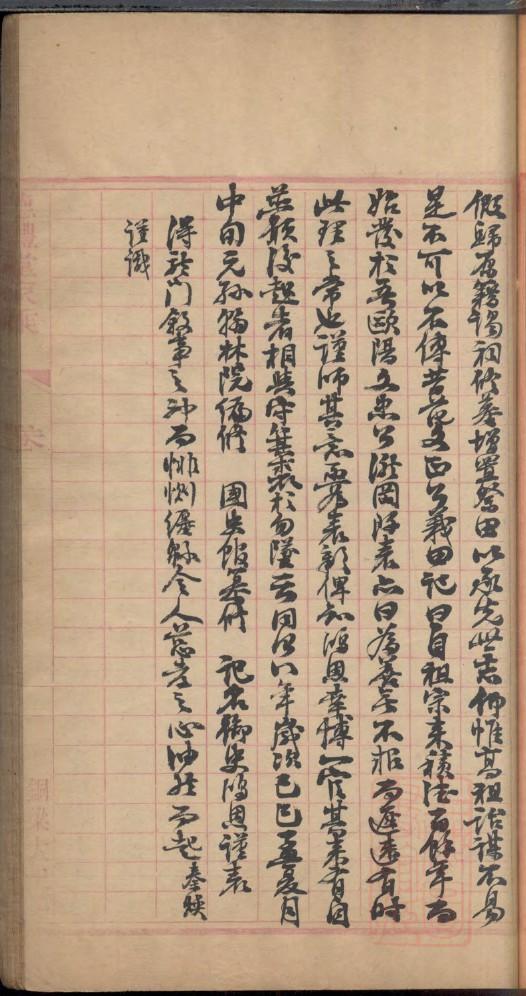 假歸展籍謁祠修墓增置祭田以承先世志仰惟高祖詒謀不易
是不可以不傳昔范文正公義田記曰自祖宗來積德百餘年而
始發於吾歐陽文忠公瀧岡阡表亦曰為善無不報而遲速有時
此理之常也謹師其意而為表新俾知鴻恩幸博一官其來有自
並願後起者相與守箕裘於勿墜云同治八年歲次己巳孟夏月
中旬元孫翰林院編修 國史館纂修 記名御史鴻恩謹表
得龍門敘事之神而悱惻纏綿令人慈孝之心油然而起秦炎
謹識